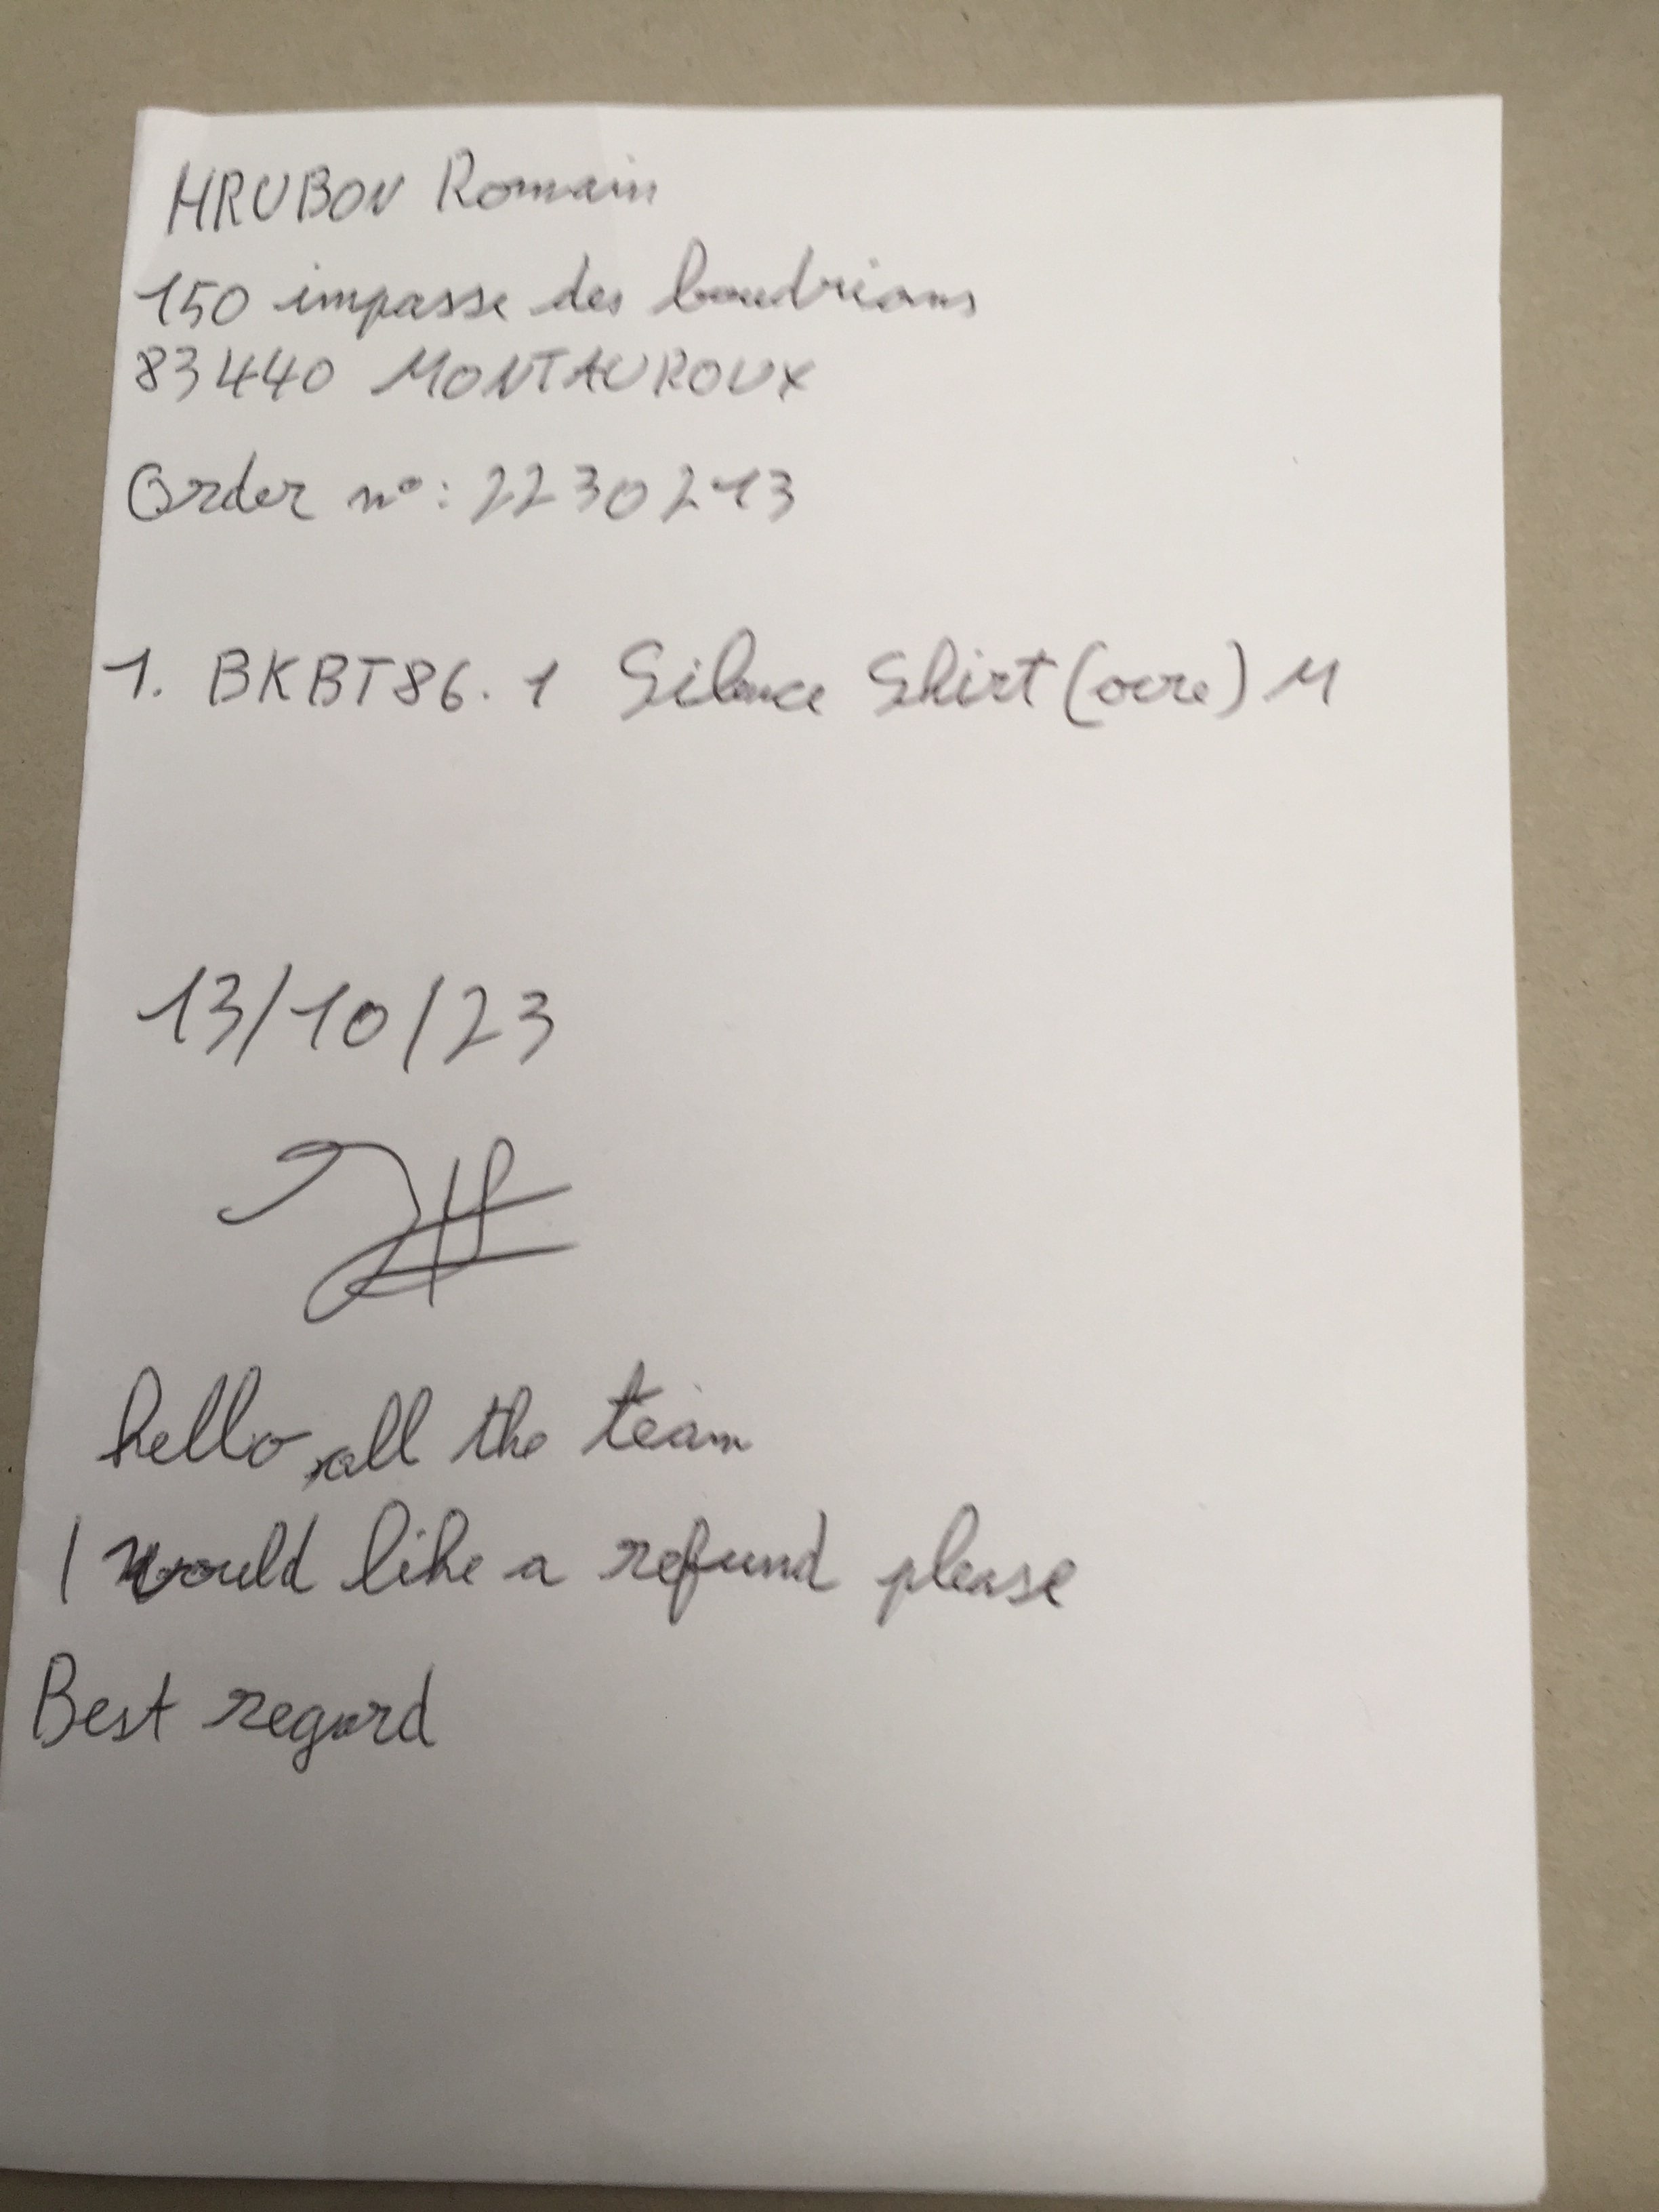 HRUBON Romain
150 impasse des boudrians
83440 MONTAUROUX
Order n°: 2230213
1. BKBT86.1 Silence Shirt (ocre) M
13/10/23
hello, all the team
I would like a refund please
Best regard